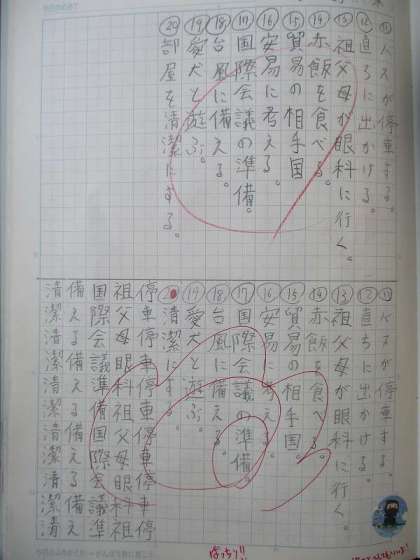 ⑪バスが停車する。
⑫直ちに出かける。
⑬祖父母が眼科に行く。
⑭赤飯を食べる。
⑮貿易の相手国
⑯安易に考える。
⑰国際会議の準備。
⑱台風に備える。
⑲愛犬と遊ぶ。
⑳部屋を清潔にする。
⑪バスが停車する。
⑫直ちに出かける。
⑬祖父母が眼科に行く。
⑭赤飯を食べる。
⑮貿易の相手国。
⑯安易に考える。
⑰国際会議の準備。
⑱台風に備える。
⑲愛犬と遊ぶ。
⑳清潔にする。
停車停車停車停車停車停
祖父母眼科祖父母眼科祖
国際会議準備国際会議準
備える備える備える備え
清潔清潔清潔清潔清潔清
ばっちり!!